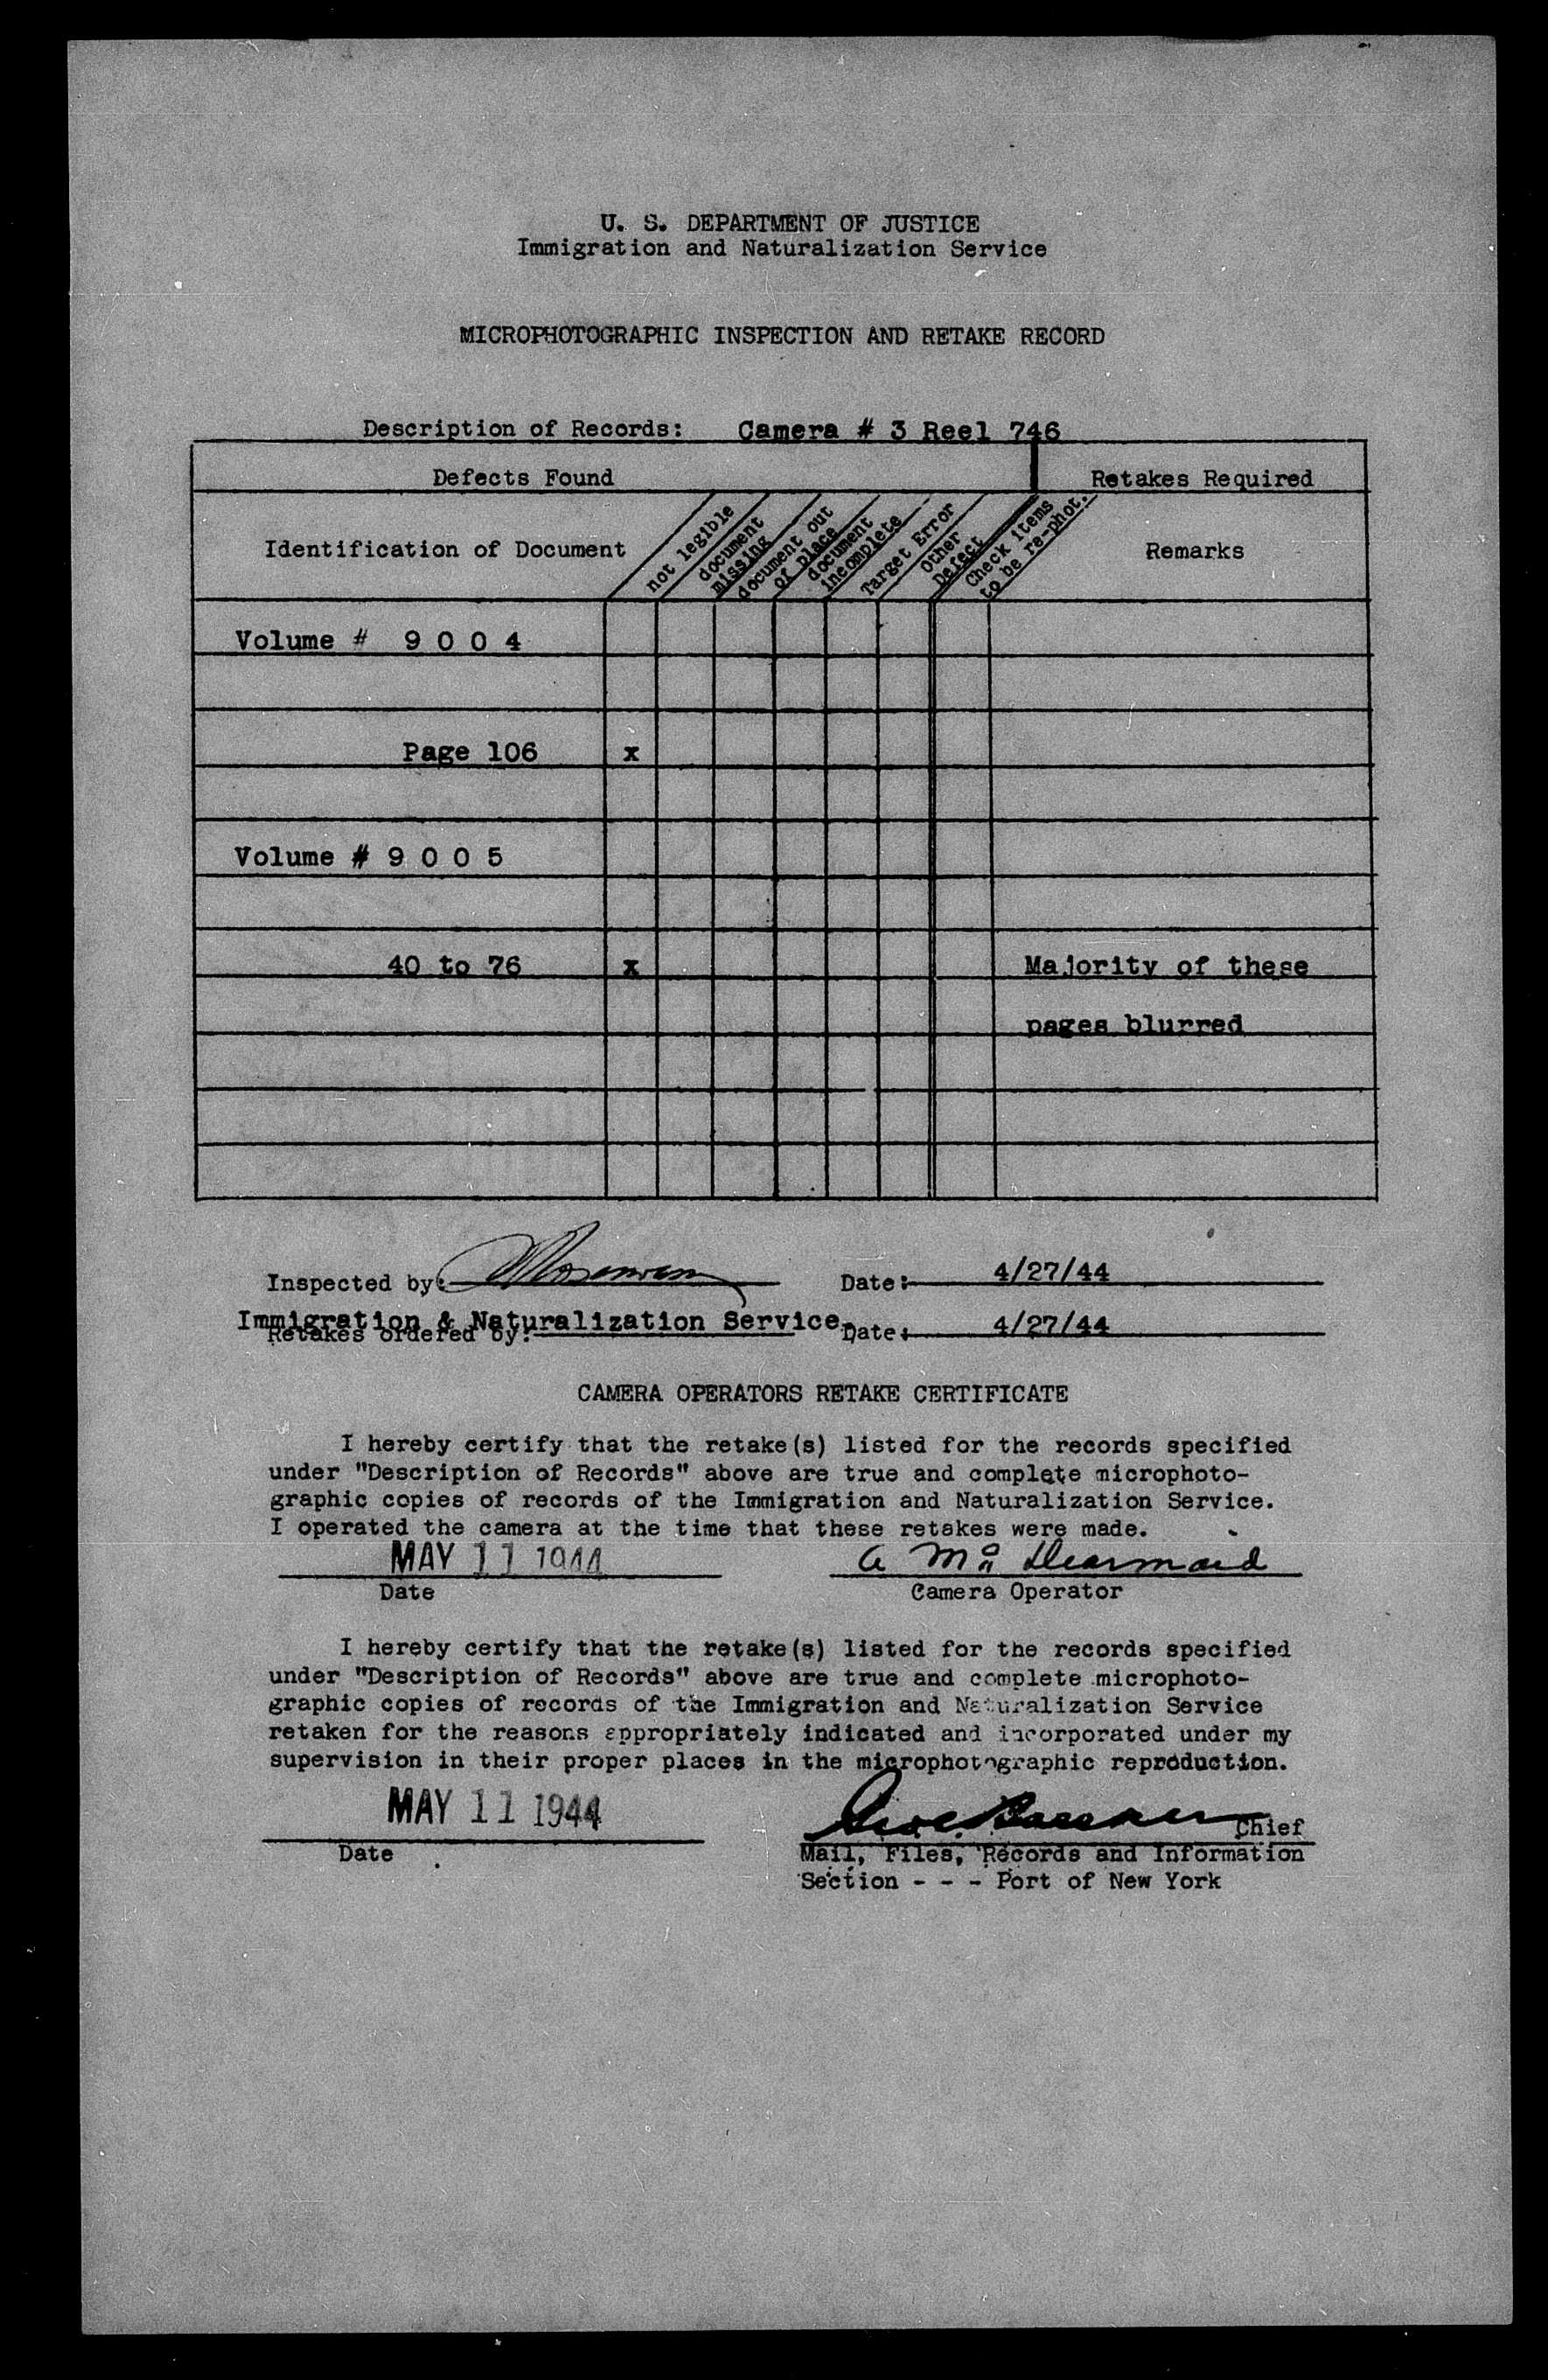 U. S. DEPARTMENT OF JUSTICE
Immigration and Naturalization Service
MICROPHOTOGRAPHIC INSPECTION AND RETAKE RECORD
Description of Records: Camera # 3 Reel 746
Defects Found
Retakes Required
Identification of Document
not legible
document
missing
document out
of place
document
incomplete
Target Error
Other
Defect
Check items
to be re-phot.
Remarks
Volume # 9 0 0 4
Page 106 x
Volume # 9 0 0 5
40 to 76 x Majority of these
pages blurred
Inspected by: Date: 4/27/44
Immigration & Naturalization Service.
Retakes ordered by: Date: 4/27/44
CAMERA OPERATORS RETAKE CERTIFICATE
I hereby certify that the retake(s) listed for the records specified
under "Description of Records" above are true and complete microphoto-
graphic copies of records of the Immigration and Naturalization Service.
I operated the camera at the time that these retakes were made.
MAY 11 1944
Date Camera Operator
I hereby certify that the retake(s) listed for the records specified
under "Description of Records" above are true and complete microphoto-
graphic copies of records of the Immigration and Naturalization Service
retaken for the reasons appropriately indicated and incorporated under my
supervision in their proper places in the microphotographic reproduction.
MAY 11 1944
Chief
Date Mail, Files, Records and Information
Section - - - Port of New York